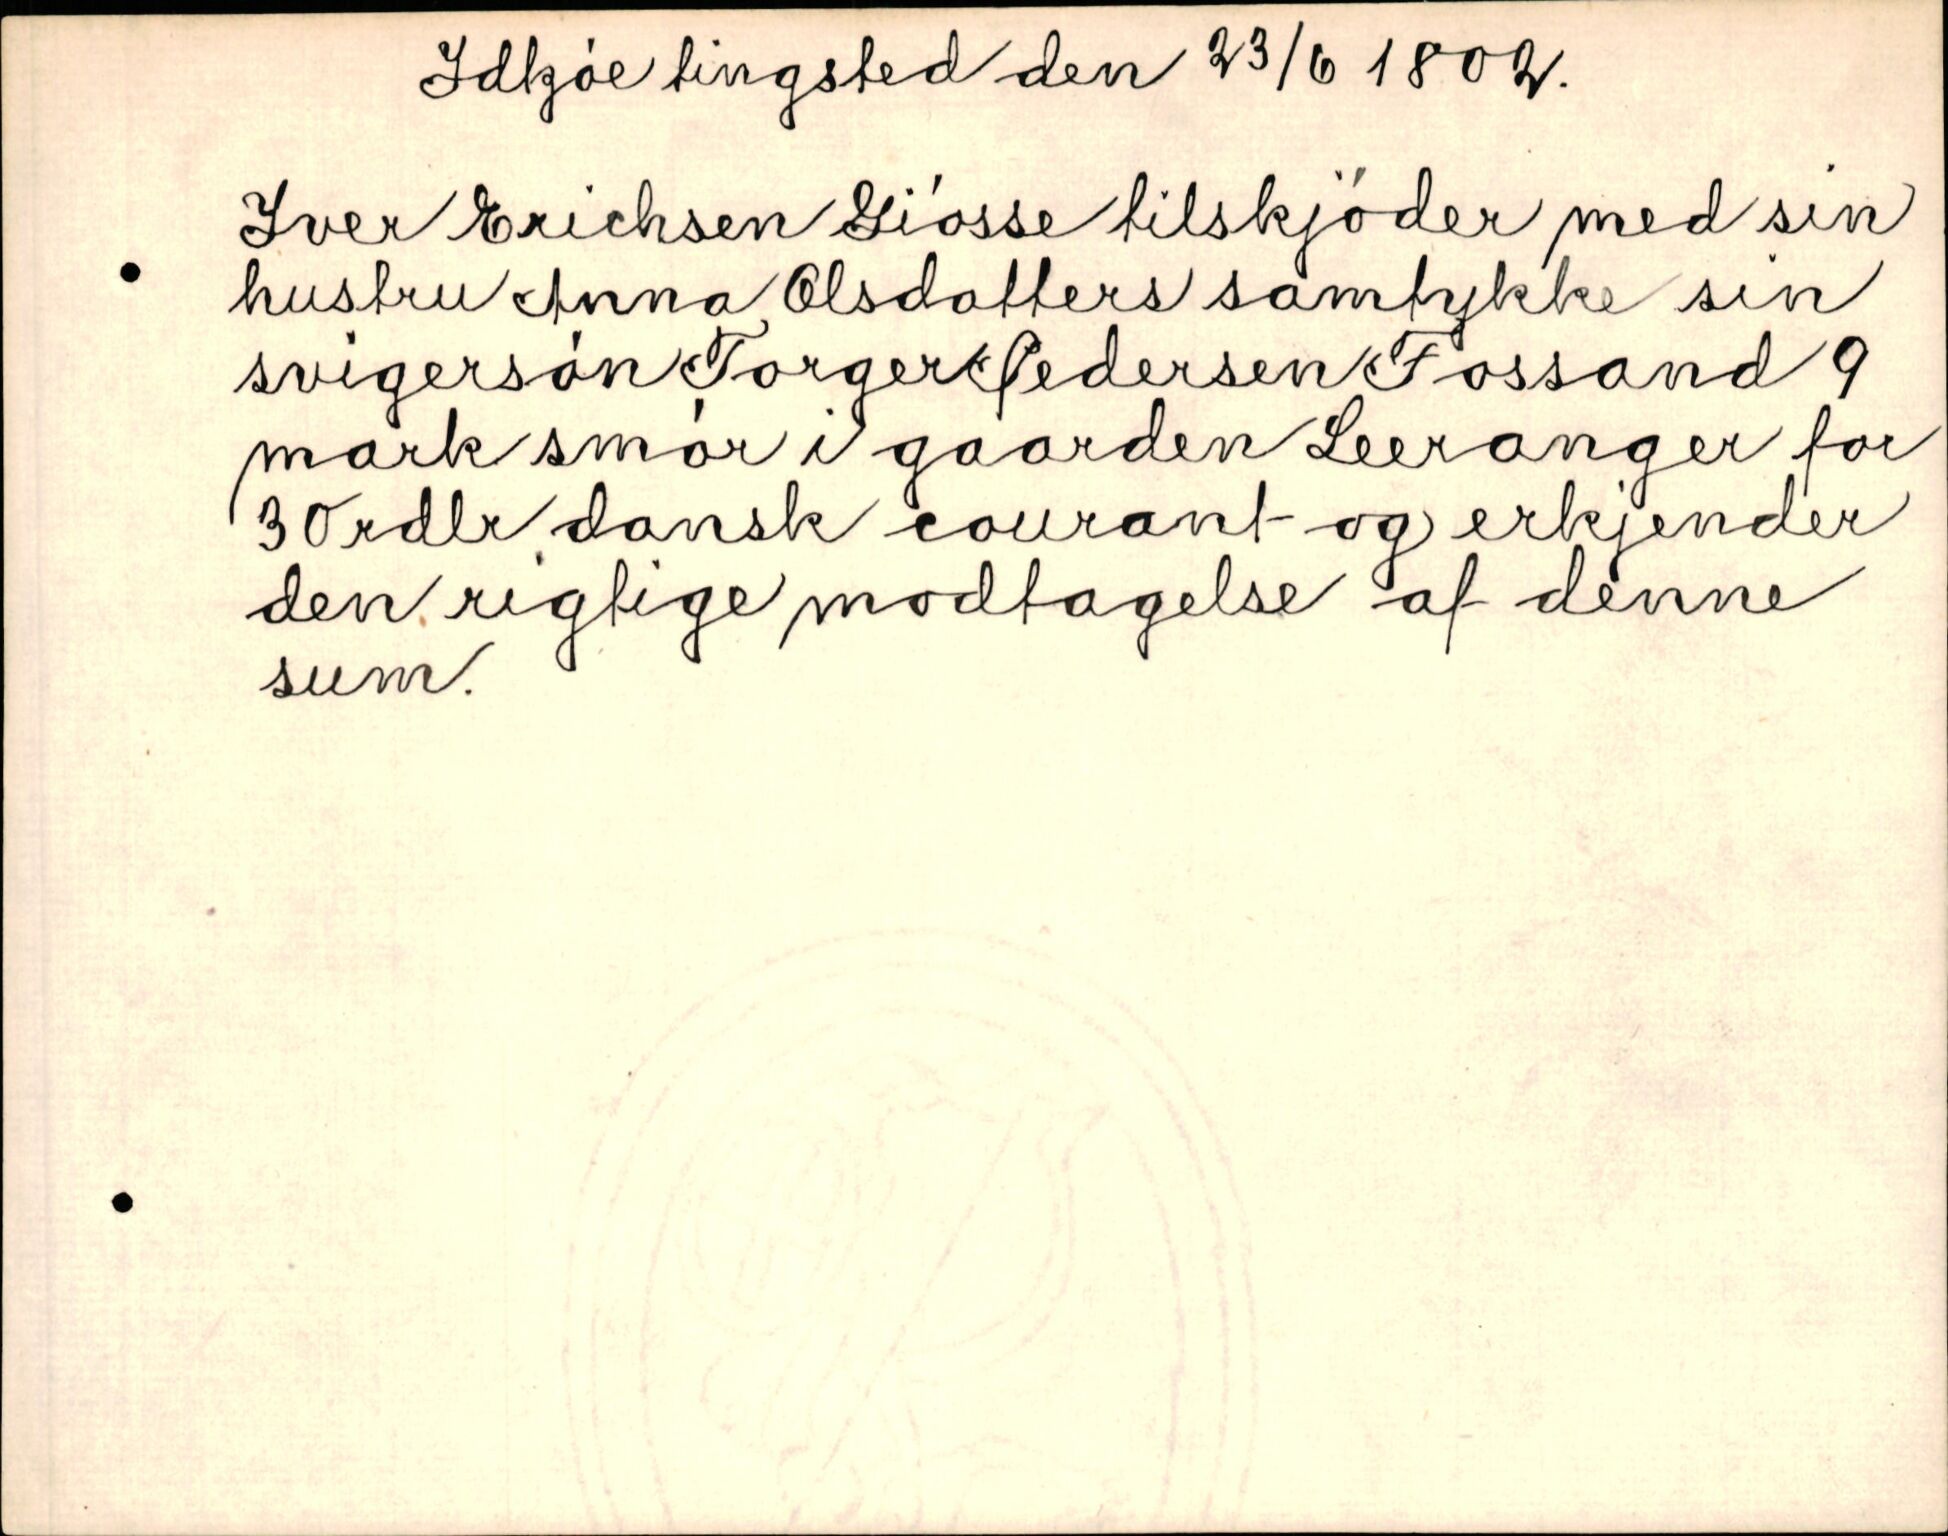 Idkjóe tingsted den 23/6 1802.
Iver Erichsen Giósse tilskjóder med sin
hustru Anna Olsdatters samtykke sin
svigersón Torger Pedersen Fossand 9
mark smór i gaarden Leeranger for
30 rdlr dansk courant og erkjender
den rigtige modtagelse af denne
sum.